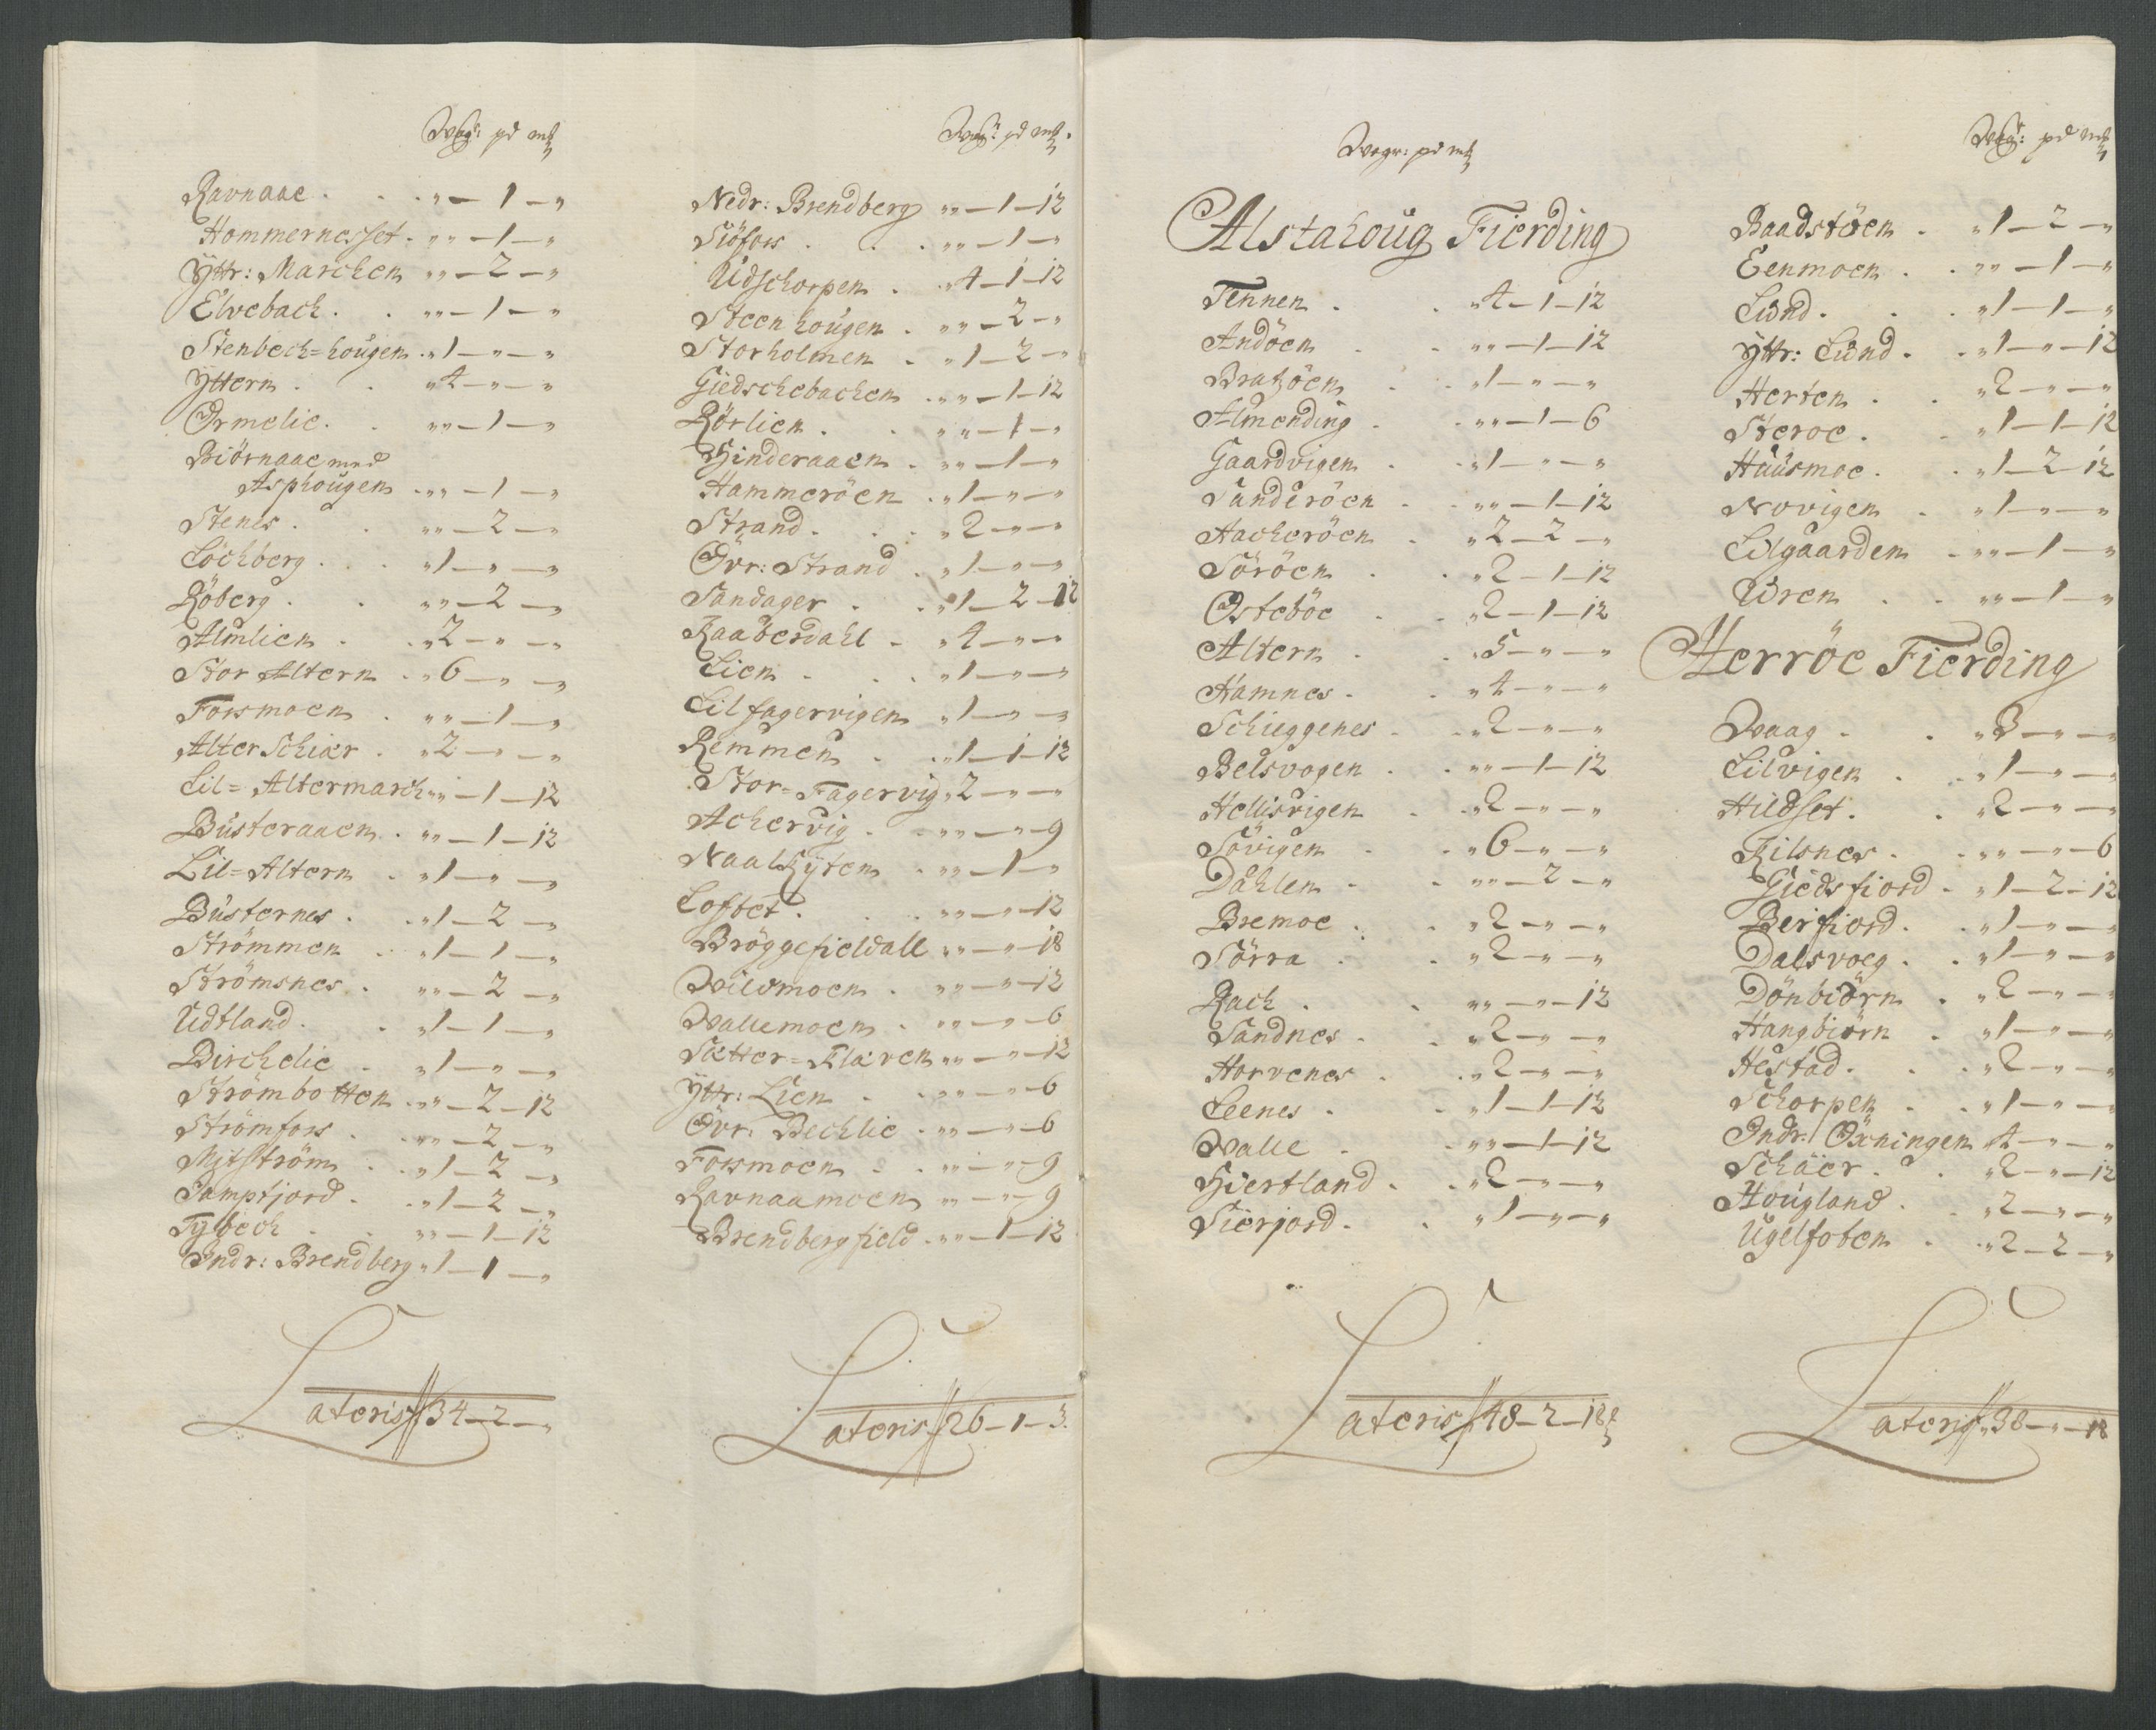 Wogr: pd mk
Ravnaae . . „ „ – 1 – „
Hammernesset . „ „ – 1 – „
Ÿttr: Marchen „ „ – 2 – „
Elvebach . . „ „ – 1 – „
Stenbech=hougen . „ 1 – „ – „
Ÿttern . . „ 4 – „ – „
Ormelie . . „ „ – 1 – „
Biörnaae med
Asphougen . „ „ – 1 – „
Stenes . . „ „ – 2 – „
Löchberg . . „ 1 – „ – „
Röberg . . „ „ – 2 – „
Almlien . . „ 2 – „ – „
Stor Altern . „ 6 – „ – „
Forsmoen . „ „ – 1 – „
Alter Schiær . „ 2 – „ – „
Lil= Altermarch „ „ – 1 – 12
Busteraaen . „ „ – 1 – 12
Lil= Altern . „ 1 – „ – „
Busternes . . „ 1 – 2 – „
Strömmen . „ 1 – 1 – „
Strömsnes . „ „ – 2 – „
Udtland . . „ 1 – 1 – „
Birchelie . „ 1 – „ – „
Strömbotten . „ „ – 2 – 12
Strömfors . „ „ – 2 – „
Mitström . . „ 1 – 2 – „
Sampfjord . . „ 1 – 2 – „
Tylbech . . „ „ – 1 – 12
Indr: Brendberg „ 1 – 1 – „
Lateris 34 – 2 – „
Wogr: pd mk
Nedr: Brendberg „ „ – 1 – 12
Siöfors . . . „ „ – 1 – „
Udschorpen . „ 4 – 1 – 12
Steenhougen . „ „ – 2 – „
Storholmen . „ 1 – 2 – „
Giedschebachen . „ „ – 1 – 12
Rörlien . . „ „ – 1 – „
Hinderaaen . „ „ – 1 – „
Hammeröen . „ 1 – „ – „
Strand . . . „ 2 – „ – „
Övr: Strand . „ 1 – „ – „
Sandager . . „ 1 – 2 – 12
Raaberdahl . „ 4 – „ – „
Lien . . . „ 1 – „ – „
Lil fagervigen „ 1 – „ – „
Remmen . . „ 1 – 1 – 12
Stor= Fagervig „ 2 – „ – „
Achervig . . „ „ – „ – 9
Naal Rÿten . „ „ – 1 – „
Loftet . . . „ „ – „ – 12
Bröggefieldall „ „ – „ – 18
Wildmoen . „ „ – „ – 12
Wallemoen . „ „ – „ – 6
Sætter= Flaren „ „ – „ – 12
Ÿttr: Lien . . „ „ – „ – 6
Övr: Bechlie . „ „ – „ – 6
Forsmoen . . „ „ – „ – 9
Ravnaamoen „ „ – „ – 9
Brendbergfield . „ „ – 1 – 12
Lateris 26 – 1 – 3.
Wogr: pd mk
Alstahoug Fierding
Tennen . . „ 4 – 1 – 12
Andöen . . „ „ – 1 – 12
Bratzöen . . „ 1 – „ – „
Almending . . „ „ – 1 – 6
Gaardvigen . . „ 1 – „ – „
Sanderöen . . „ „ – 1 – 12
Hacheröen . „ 2 – 2 – „
Söröen . . „ 2 – 1 – 12
Osteböe . „ 2 – 1 – 12
Altern . . 5 – „ – „
Hamnes . . „ 4 – „ – „
Schieggenes . . „ 2 – „ – „
Belsvogen . . „ „ – 1 – 12
Hellisvigen . . „ 2 – „ – „
Sövigen . . „ 6 – „ – „
Dahlen . . „ „ – 2 – „
Bremoe . . „ 2 – „ – „
Sörra . . „ 2 – „ – „
Rach . . „ „ – „ – 12
Sandnes . . „ 2 – „ – „
Horvenes . . „ 2 – „ – „
Leenes . . „ 1 – 1 – 12
Walle . . „ „ – 1 – 12
Hiertland . . „ 2 – „ – „
Sierjord . . „ 1 – „ – „
Lateris 48 – 2 – 18
Wogr: pd mk
Baadstöen . „ 1 – 2 – „
Eenmoen . . „ „ – 1 – „
Lund . . . „ 1 – 1 – „
Ÿttr: Lund . . „ 1 – „ – 12
Herten . . „ 2 – „ – „
Steroe . . „ 1 – 1 – 12
Huusmoe . . „ 1 – 2 – 12
Novigen . „ 1 – „ – „
Lilgaarden . „ „ – 1 – „
Uren . . „ „ – 1 – „
Herröe Fierding
Waag . . „ 3 – „ – „
Lilvigen . . „ 1 – „ – „
Hildset . . „ 2 – „ – „
Filsnes . . „ „ – „ – 6
Giedsfiord . „ 1 – 2 – 12
Berfiord . . „ 1 – „ – „
Dalsvoeg . . „ 1 – „ – „
Dönbiörn . „ 2 – „ – „
Hangbiörn . „ 1 – „ – „
Hestad . . . „ 2 – „ – „
Schorpen . . „ 1 – „ – „
Indr: Öxningen „ 4 – „ – „
Schäer . . „ 2 – „ – 12
Hougland . . „ 2 – „ – „
Ugelfoten . „ 2 – 2 – „
Lateris „ 38 – „ – 18